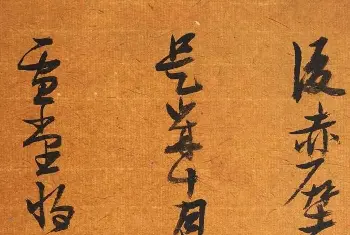 後赤壁
是歲十月
雪堂將